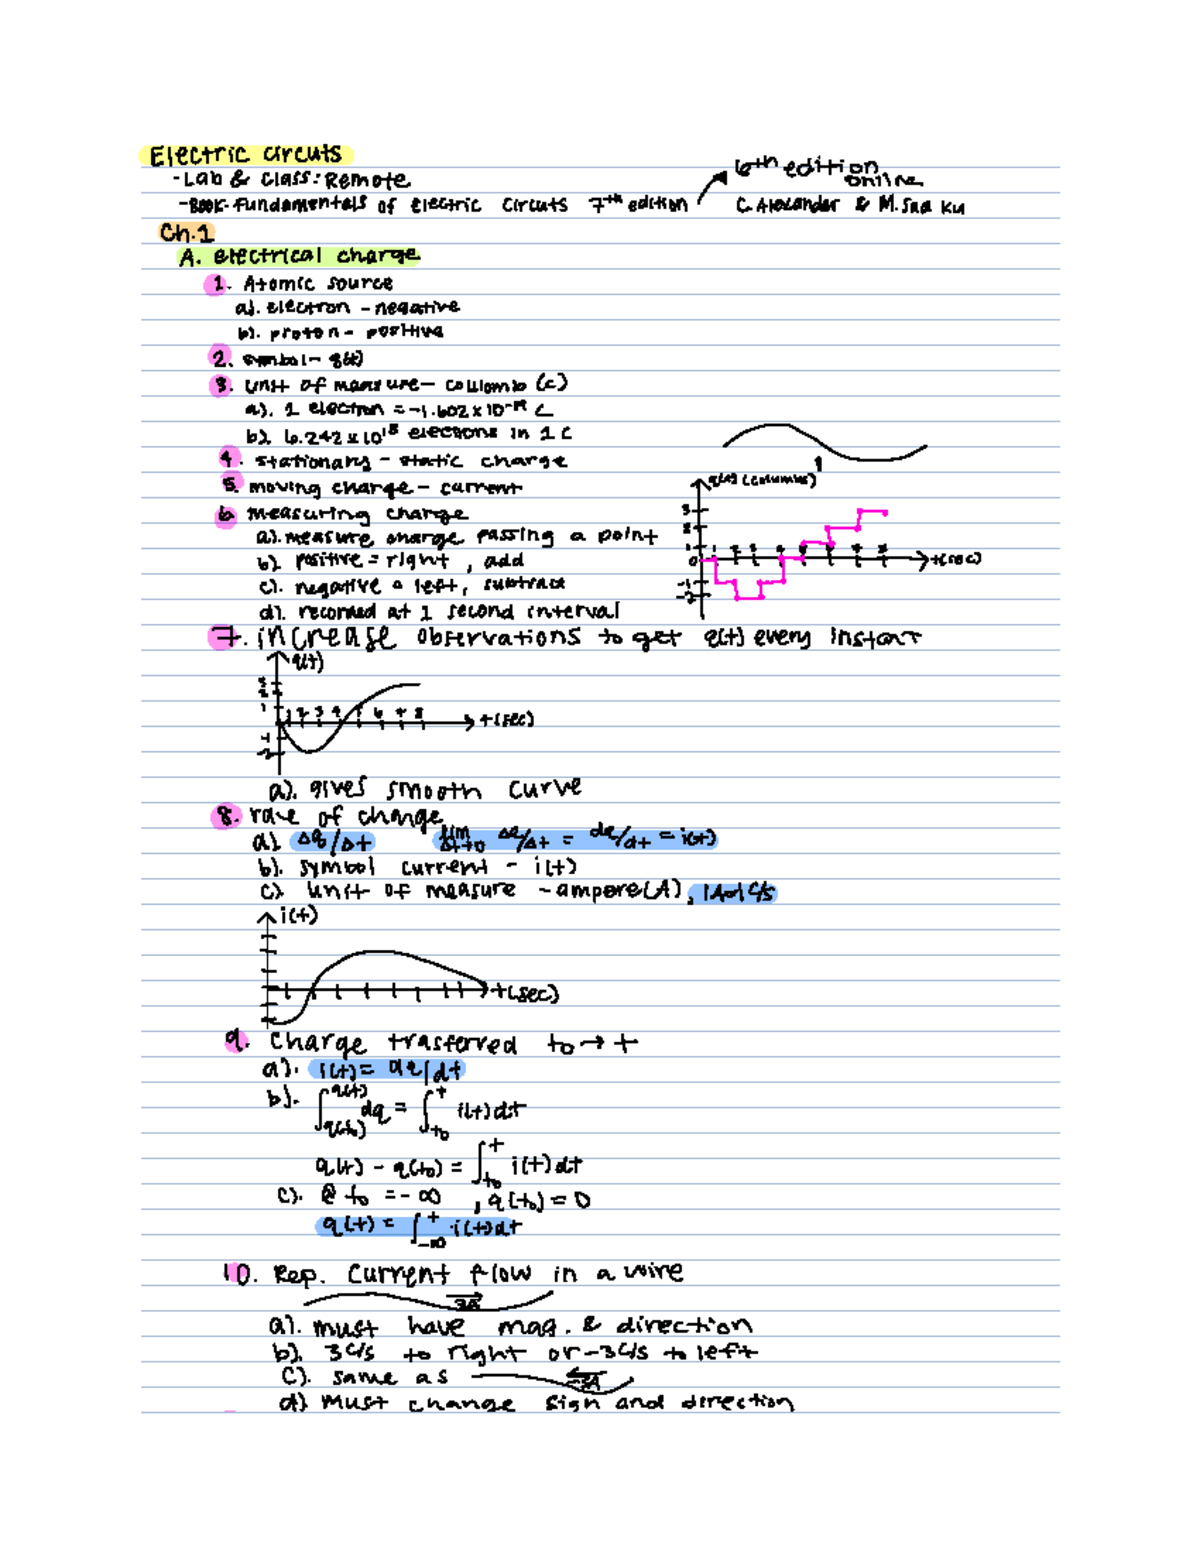 Electric circuts
-Lab & class: Remote
6th edition online
-Book- Fundamentals of Electric Circuts 7th edition
C. Alexander & M. Sadiku
Ch.1
A. electrical charge
1. Atomic source
a). electron - negative
b). proton - positive
2. symbol - q(t)
3. unit of measure - coulomb (c)
a). 1 electron = -1.602 x 10^-19 C
b). 6.242 x 10^18 electrons in 1 C
4. stationary - static charge
5. moving charge - current
q(t) (coulumbs)
6 measuring charge
a). measure charge passing a point
b). positive = right, add
c). negative = left, subtract
d). recorded at 1 second interval
3
2
1
0
-1
-2
1 2 3 4 5 6 7 8
t(sec)
7. increase observations to get q(t) every instant
q(t)
3
2
1
-1
-2
1 2 3 4 5 6 7 8
t(sec)
a). gives smooth curve
8. rate of change
a). Δq/Δt lim Δt→0 Δq/Δt = dq/dt = i(t)
b). symbol current - i(t)
c). unit of measure - ampere(A), 1A=1C/s
i(t)
t(sec)
9. Charge trasferred t₀ → t
a). i(t) = dq/dt
b). ∫q(t₀)^q(t) dq = ∫t₀^t i(t)dt
q(t) - q(t₀) = ∫t₀^t i(t)dt
c). @ t₀ = -∞, q(t₀) = 0
q(t) = ∫-∞^t i(t)dt
10. Rep. current flow in a wire
3A
a). must have mag. & direction
b). 3C/s to right or -3C/s to left
c). same as
-3A
d). Must change sign and direction